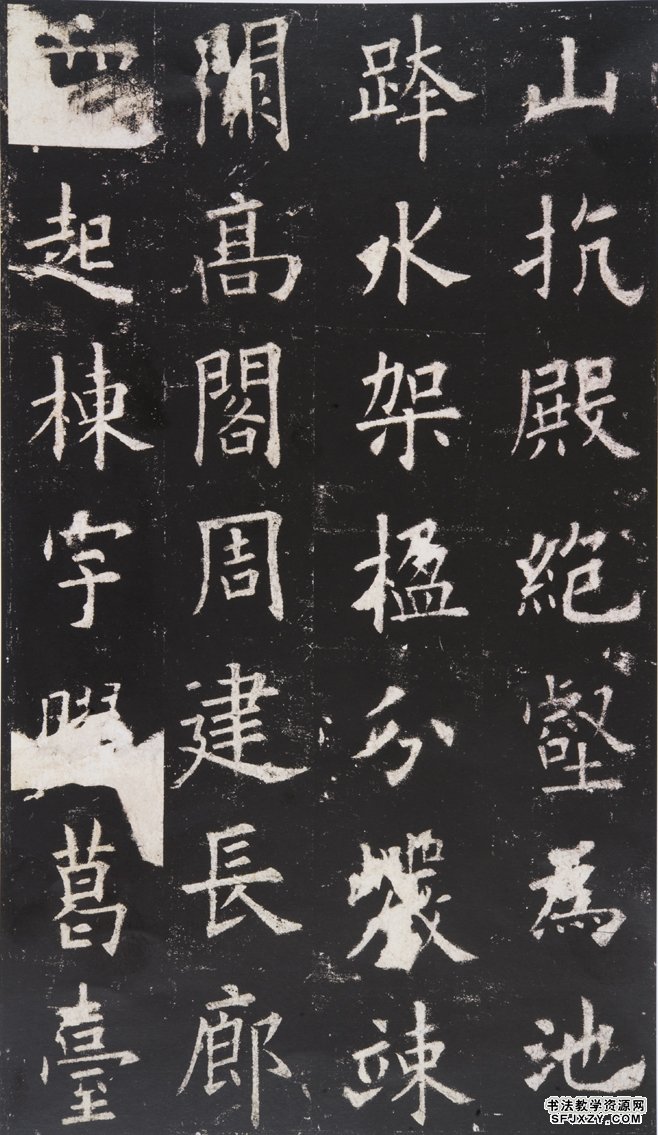 山抗殿絶壑為池
跨水架楹分巖竦
闕高閣周建長廊
四起棟宇膠葛臺
书法教学资源网
SFJXZY.COM